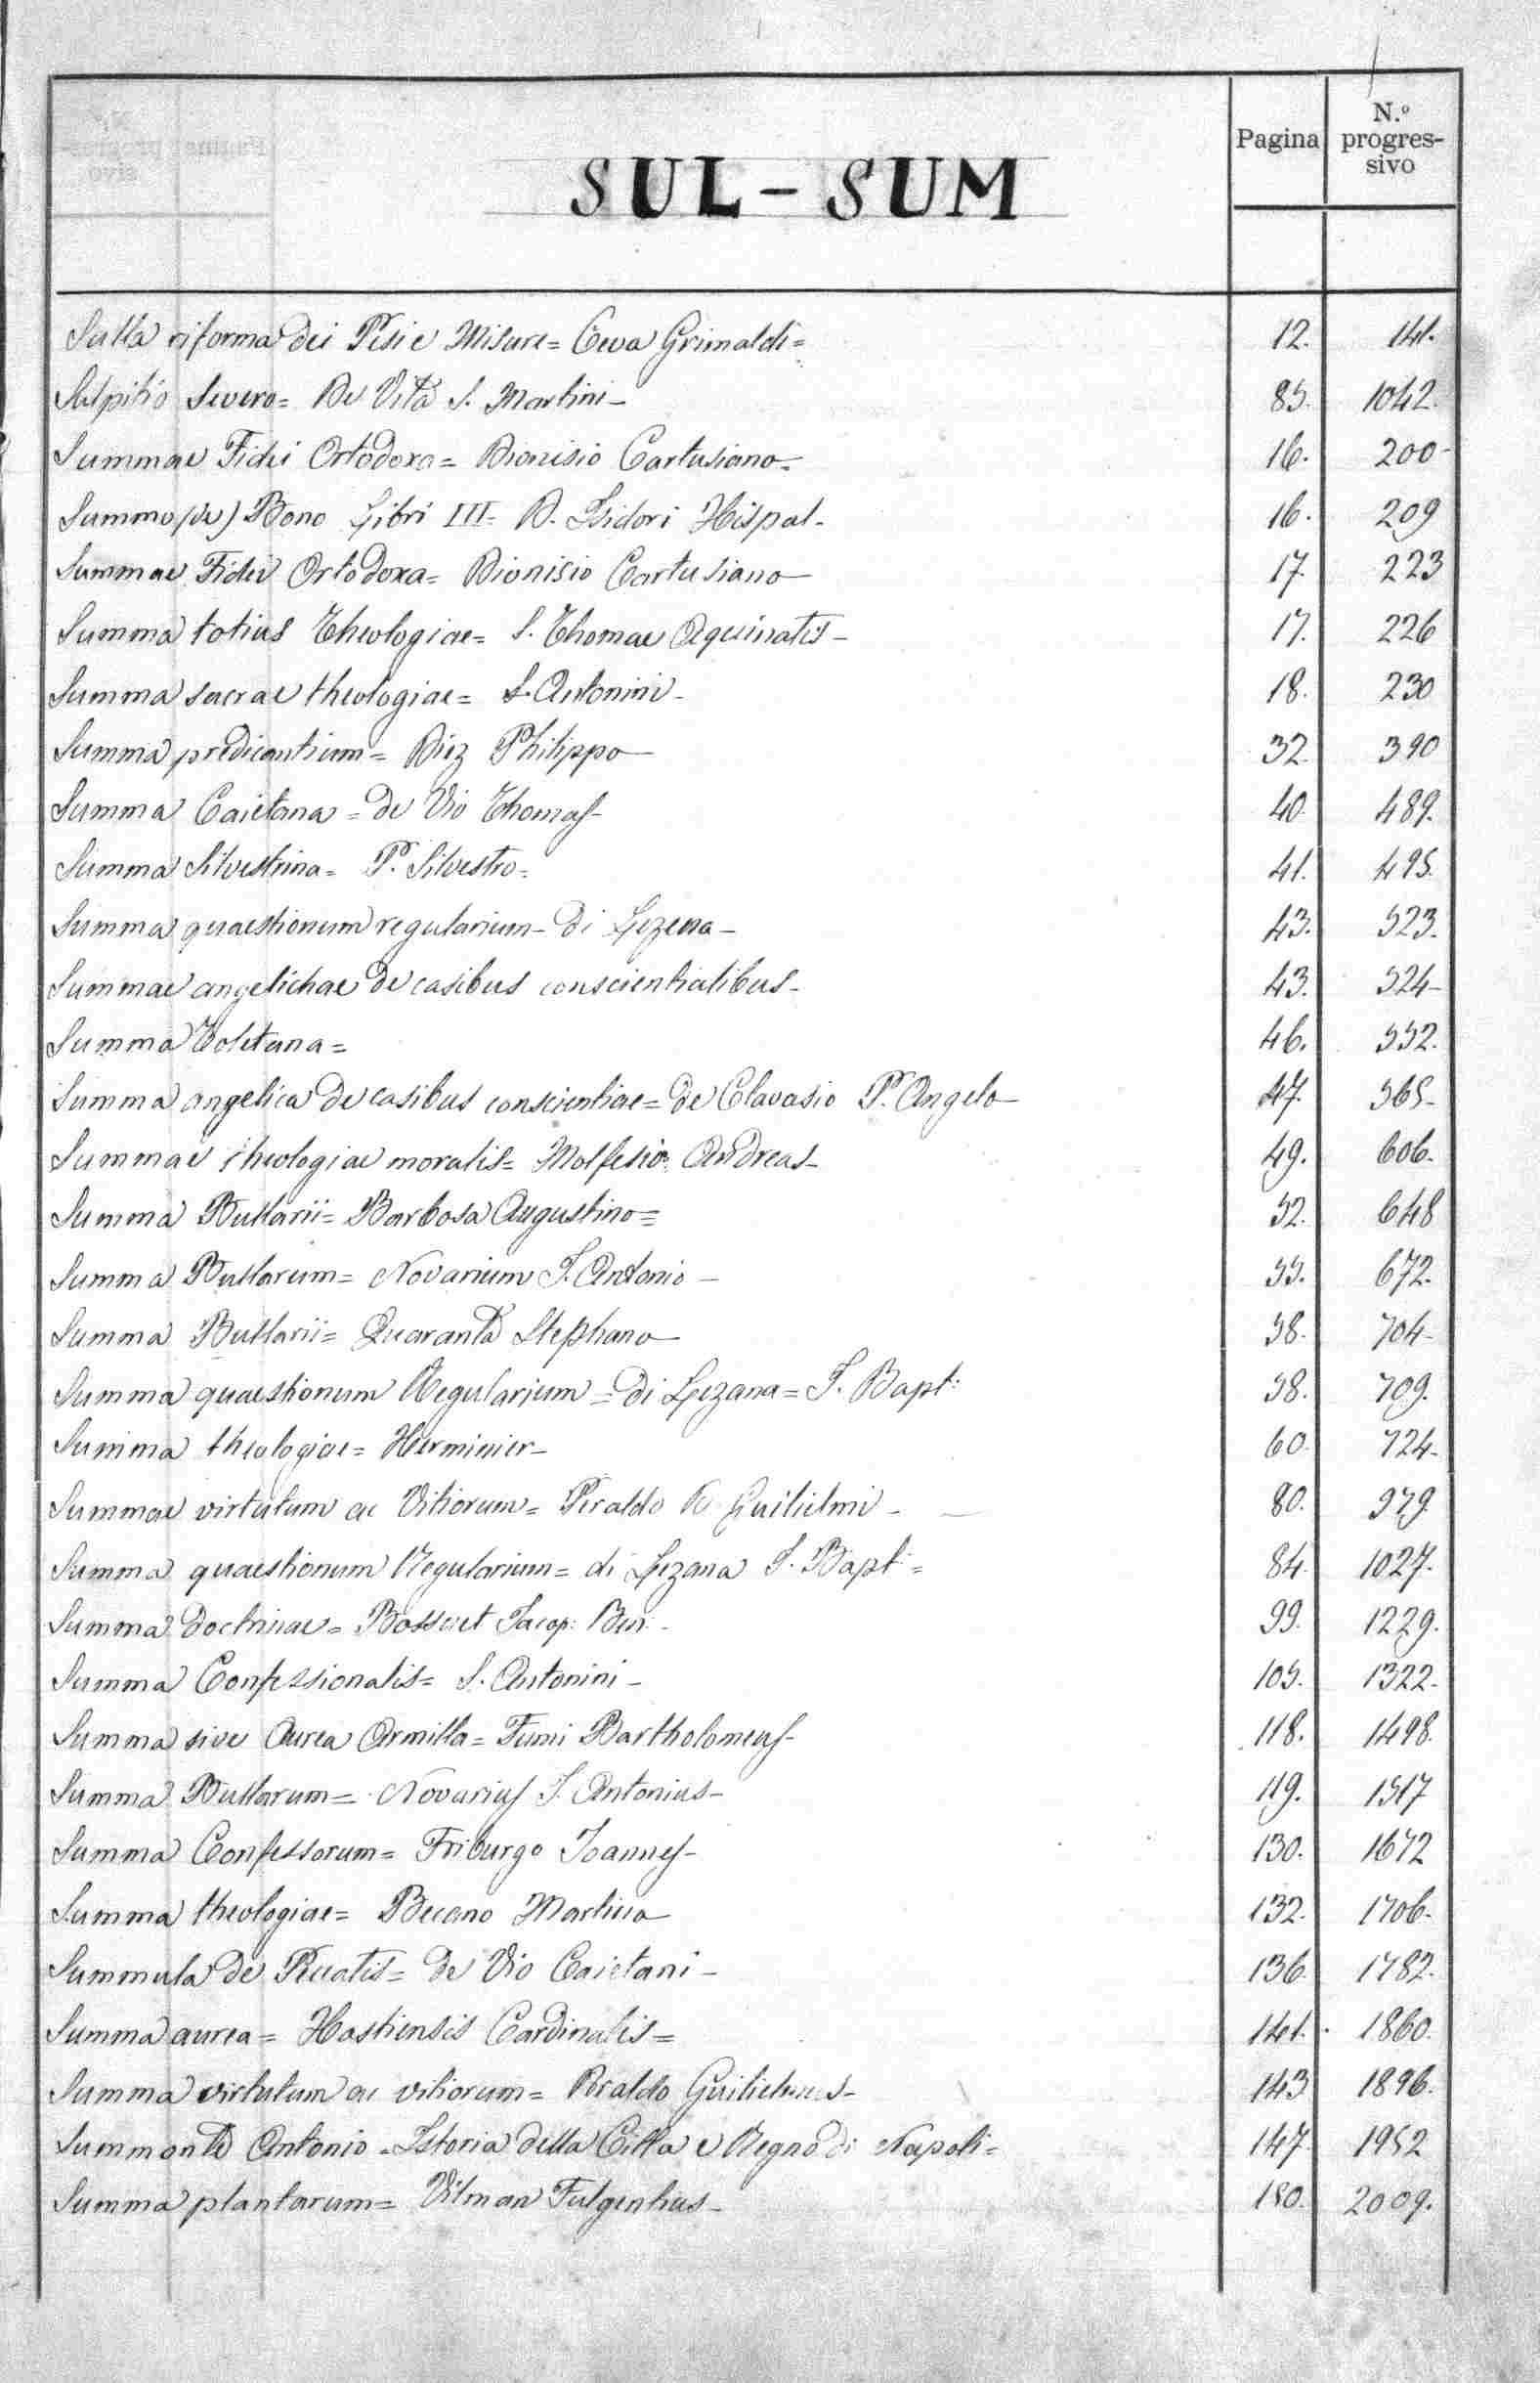 Pagina N.º progres-sivo
SUL - SUM
Sulla riforma dei Pesi e Misure = Ceva Grimaldi = 12. 141.
Sulpitio Severo = De Vita S. Martini - 85. 1042.
Summae Fidei Ortodoxa = Dionisio Cartusiano = 16. 200-
Summo (de) Bono Libri III = D. Isidori Hispal - 16. 209
Summae Fidei Ortodoxa = Dionisio Cartusiano - 17. 223
Summa totius Theologiae = S. Thomae Aquinatis - 17. 226
Summa sacrae theologiae = S. Antonini - 18. 230
Summa predicantium = Diez Philippo - 32. 390
Summa Caietana = de Vio Thomas - 40. 489.
Summa Silvestrina = P. Silvestro = 41. 495.
Summa quaestionum regularium - di Lezena - 43. 523.
Summae angelichae de casibus conscientialibus - 43. 524-
Summa Toletana = 46. 552.
Summa angelica de casibus conscientiae = de Clavasio P. Angelo - 47. 565-
Summae theologiae moralis = Molfesio Andreas - 49. 606.
Summa Bullarii = Barbosa Augustino = 52. 648
Summa Bullarum = Novarium J. Antonio - 55. 672.
Summa Bullarii = Quaranta Stephano - 58. 704-
Summa quaestionum Regularium = di Lezana = J. Bapt: 58. 709.
Summa theologiae = Herminier - 60. 724-
Summae virtutum ac Vitiorum = Peraldo Guilielmi - 80. 979.
Summa quaestionum Regularium = di Lezana J. Bapt: = 84. 1027.
Summa Doctrinae = Bossuet Jacop: Ben: - 99. 1229.
Summa Confessionalis = S. Antonini - 105. 1322-
Summa sive Aurea Armilla = Fumi Bartholomeus - 118. 1498.
Summa Bullarum = Novarius J. Antonius - 119. 1517
Summa Confessorum = Friburgo Joannes - 130. 1672
Summa theologiae = Becano Martino 132. 1706.
Summula de Peccatis = de Vio Caietani - 136. 1782.
Summa aurea = Hostiensis Cardinalis = 141. 1860.
Summa virtutum ac vitiorum = Peraldo Guilielmus - 143 1896.
Summonte Antonio - Istoria della Citta e Regno di Napoli = 147. 1952
Summa plantarum = Vitman Fulgentius - 150. 2009.